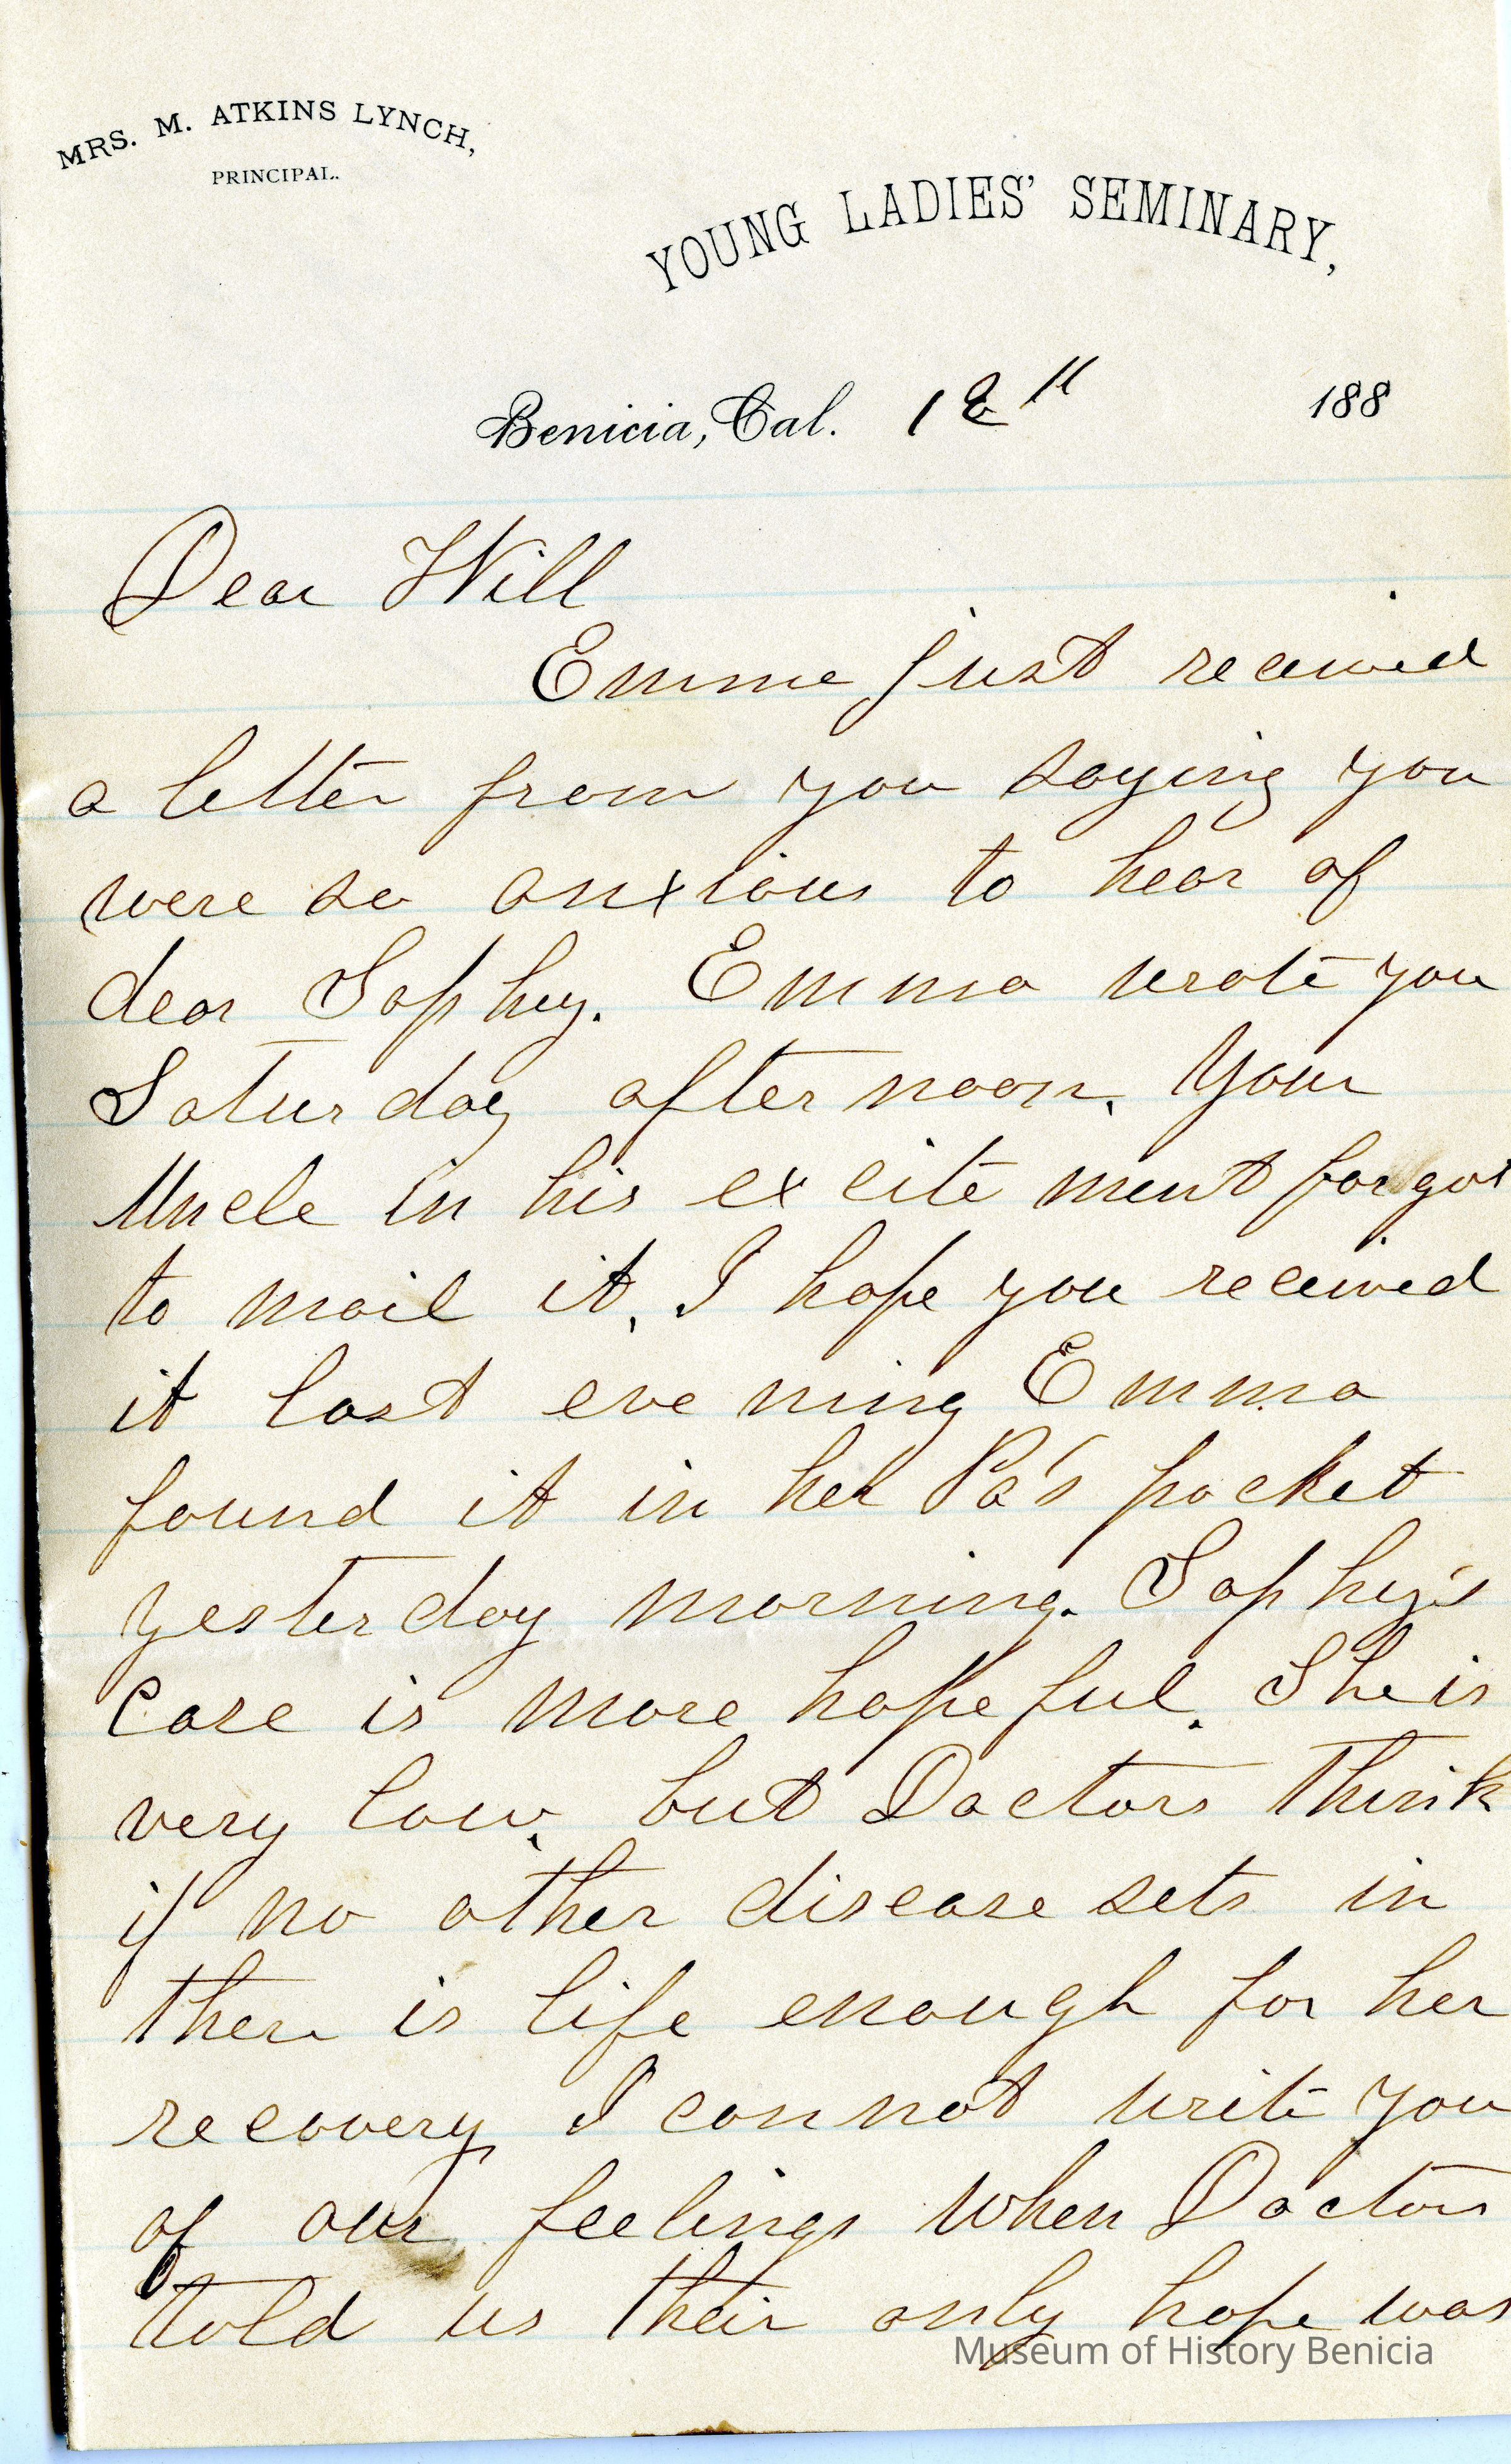 MRS. M. ATKINS LYNCH,
PRINCIPAL.
YOUNG LADIES' SEMINARY,
Benicia, Cal. 188
Dear Will
Emma just received
a letter from you saying you
were so anxious to hear of
dear Sophy. Emma wrote you
Saturday afternoon. Your
Uncle in his excitement forgot
to mail it, I hope you received
it last evening Emma
found it in her Pa's pocket
yesterday morning. Sophy's
case is more hopeful. She is
very low, but Doctors think
if no other disease sets in
there is life enough for her
recovery, I cannot write you
of our feelings when Doctors
told us their only hope was
Museum of History Benicia